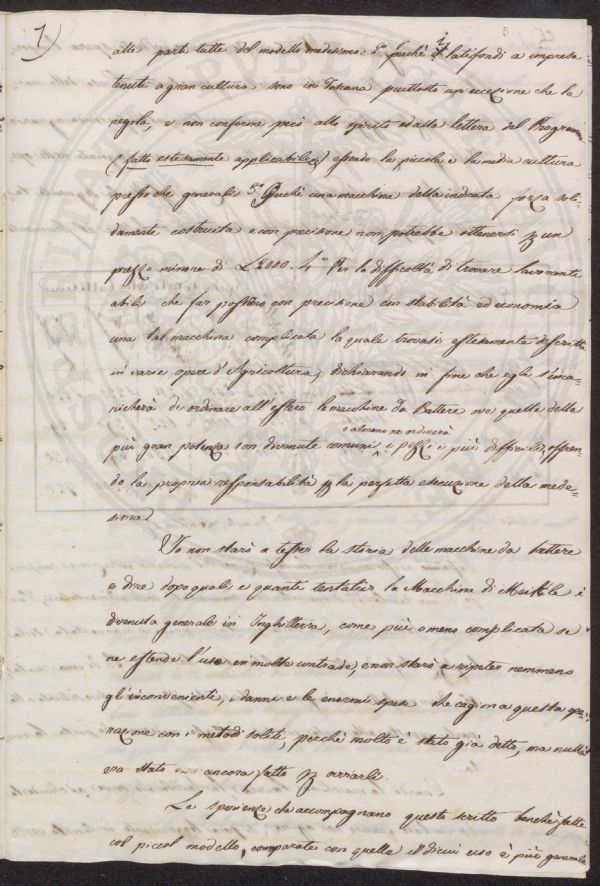 7)
alle parti tutte del modello medesimo: 2° Perchè i latifondi a impresa
tenuti a gran cultura sono in Toscana piuttosto un eccezione che la
regola, e non conforme perciò allo spirito ed alla lettera del Program
(fatto estesamente applicabile) essendo la piccola e la media cultura
presso che generali 3° Perchè una macchina della indicata forza soli-
damente costruita e con precisione non potrebbe ottenersi p un
prezzo minore di L2000. 4° Per la difficoltà di trovare lavoranti
abili che far possino con precisione con stabilità ed economia
una tal macchina complicata la quale trovasi estesamente descritta
in varie opere d'Agricoltura; dichiarando in fine che egli s'inca-
richerà di ordinare all'estero le macchine da Battere ove quelle della
o almeno ne ordinerà
più gran potenza son divenute comuni i pezzi i più difficili, offren-
do la propria responsabilità p la perfetta esecuzione della mede-
sima.
Io non starò a tesser la storia delle macchine da battere
e dire dopo quali e quanti tentativi la Macchina di Meikle è
divenuta generale in Inghilterra, come più o meno complicata se
ne estende l'uso in molte contrade, e non starò a ripeter nemmeno
gl'inconvenienti, i danni e le enormi spese che cagiona questa ope-
razione con i metodi soliti, perchè molto è stato già detto, ma nulla
era stato ancora fatto p
Le sperienze che accompagnano questo scritto benchè fatte
col piccol modello, comparate con quelle il di cui uso è più generale